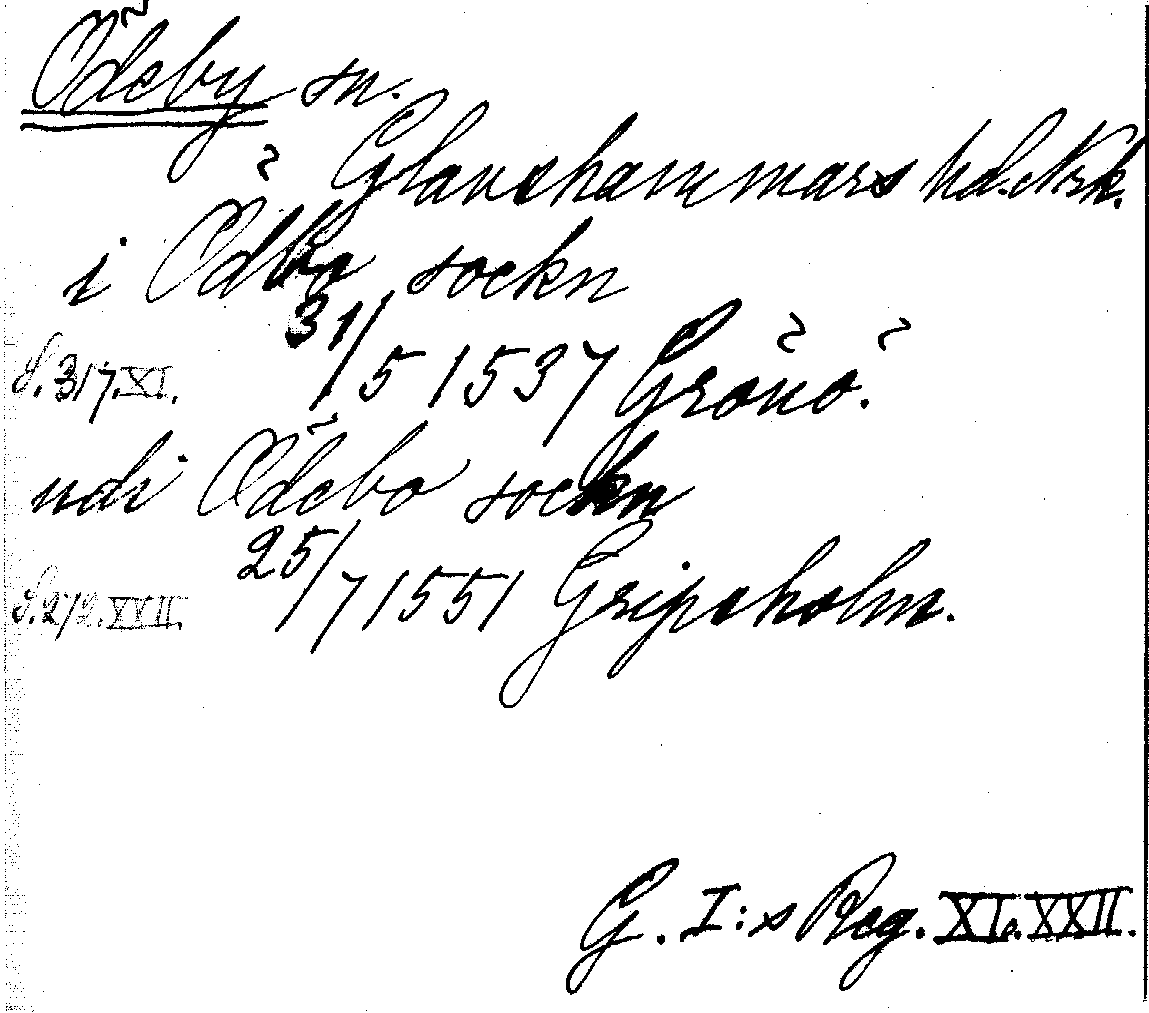 Ödeby sn.
Glanshammars hd. Nrk.
i Ödbo sockn
S. 317. XI. 31/5 1537 Grönö.
udi Ödebo sockn
S. 272. XXII. 25/7 1551 Gripsholm.
G. I:s Reg. XI. XXII.